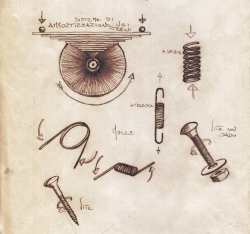 SISTEMA DI
AMMORTIZZAZIONE NEI
TRENI
MOLLE
VITE CON
DADO
VITE